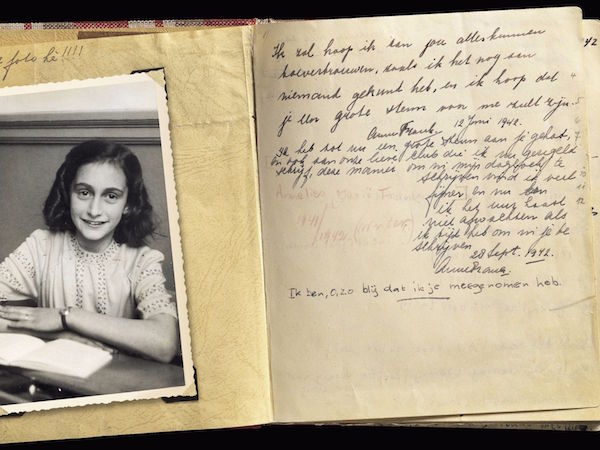 foto hè!!!!
Ik zal hoop ik aan jou alles kunnen
toevertrouwen, zoals ik het nog aan
niemand gekund heb, en ik hoop dat
je een grote steun voor me zult zijn.
Anne Frank. 12 Juni 1942.
Ik heb tot nu een grote steun aan je gehad,
en ook aan onze lieve club die ik nu geregeld
schrijf, deze manier om in mijn dagboek te
schrijven vind ik veel
fijner en nu kan
ik het uur haast
niet afwachten als
ik tijd heb om in je te
schrijven
28 Sept. 1942.
Anne Frank.
Ik ben, o, zo blij dat ik je meegenomen heb.
42